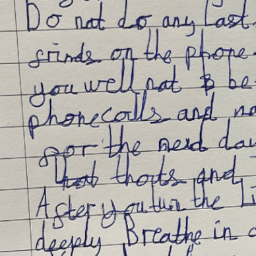 Do not do any Last
grinds on the phone
you well not to be
phonecalls and no
for the nexd day
that thouts and
After you tun the Li
deeply Breathe in a